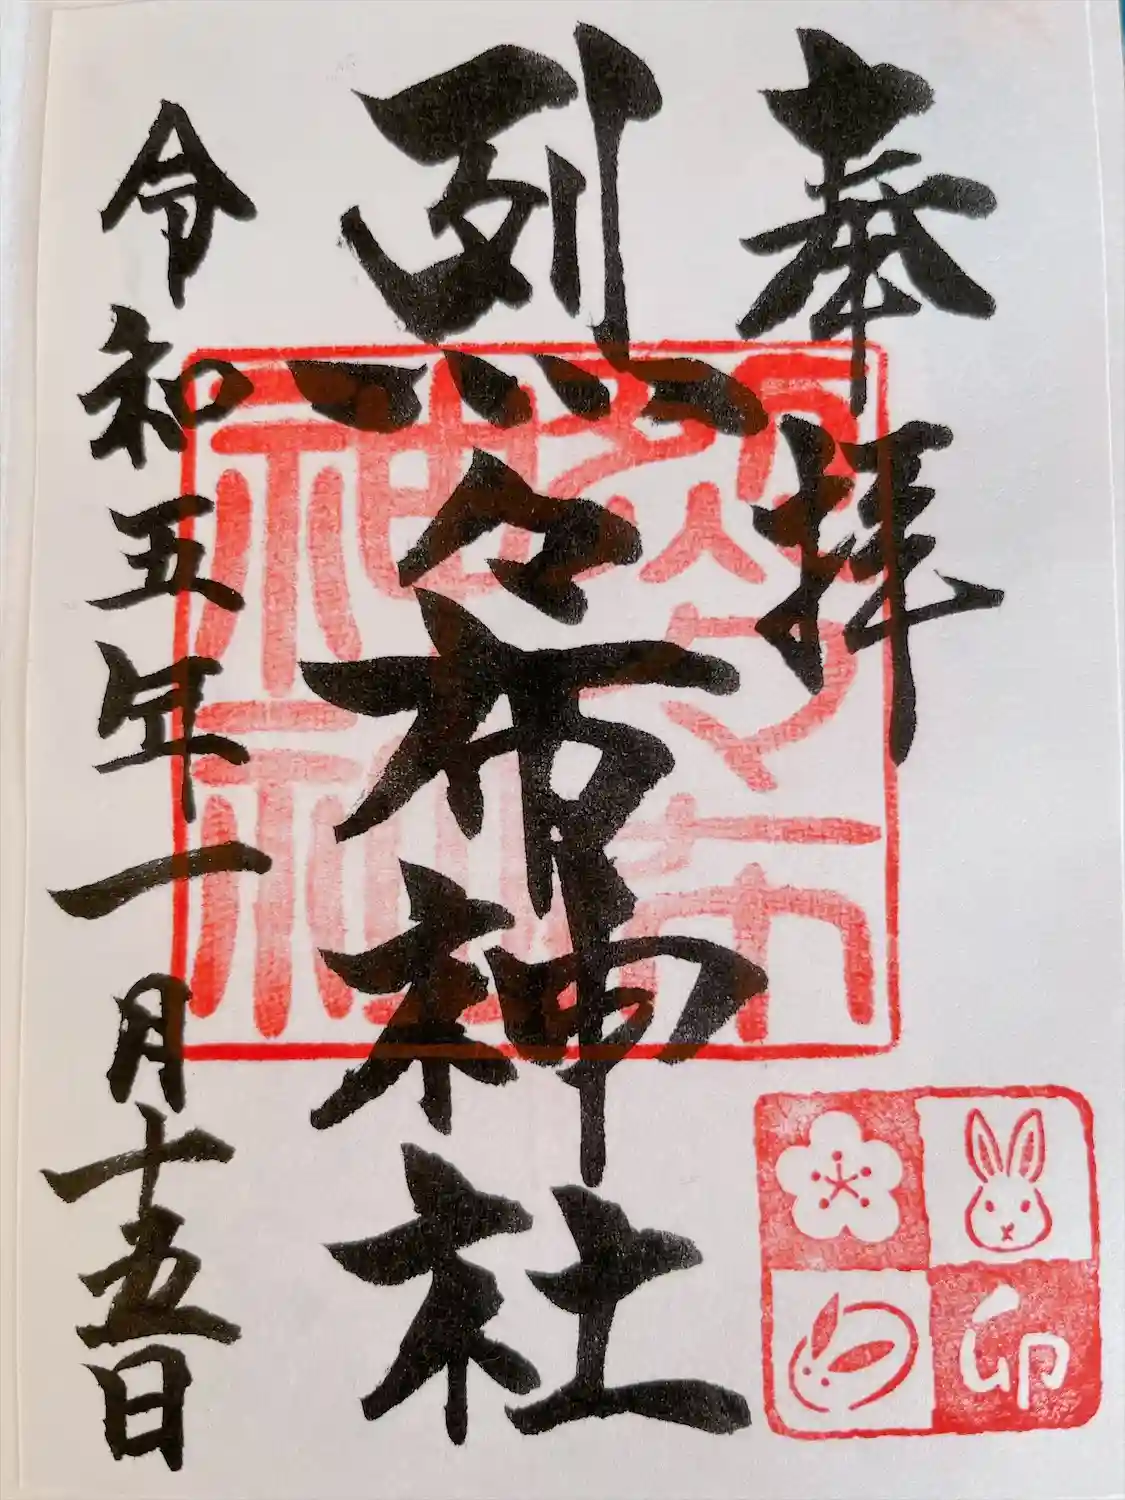 奉拝
烈々布神社
令和五年一月十五日
卯